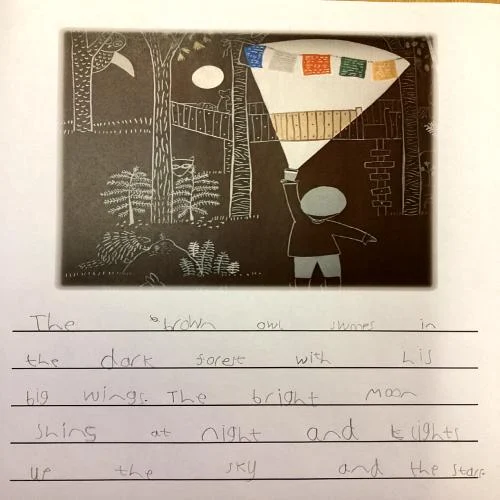 The brown owl swmes in
the dark forest with his
big wings. The bright moon
shins at night and lights
up the sky and the stars